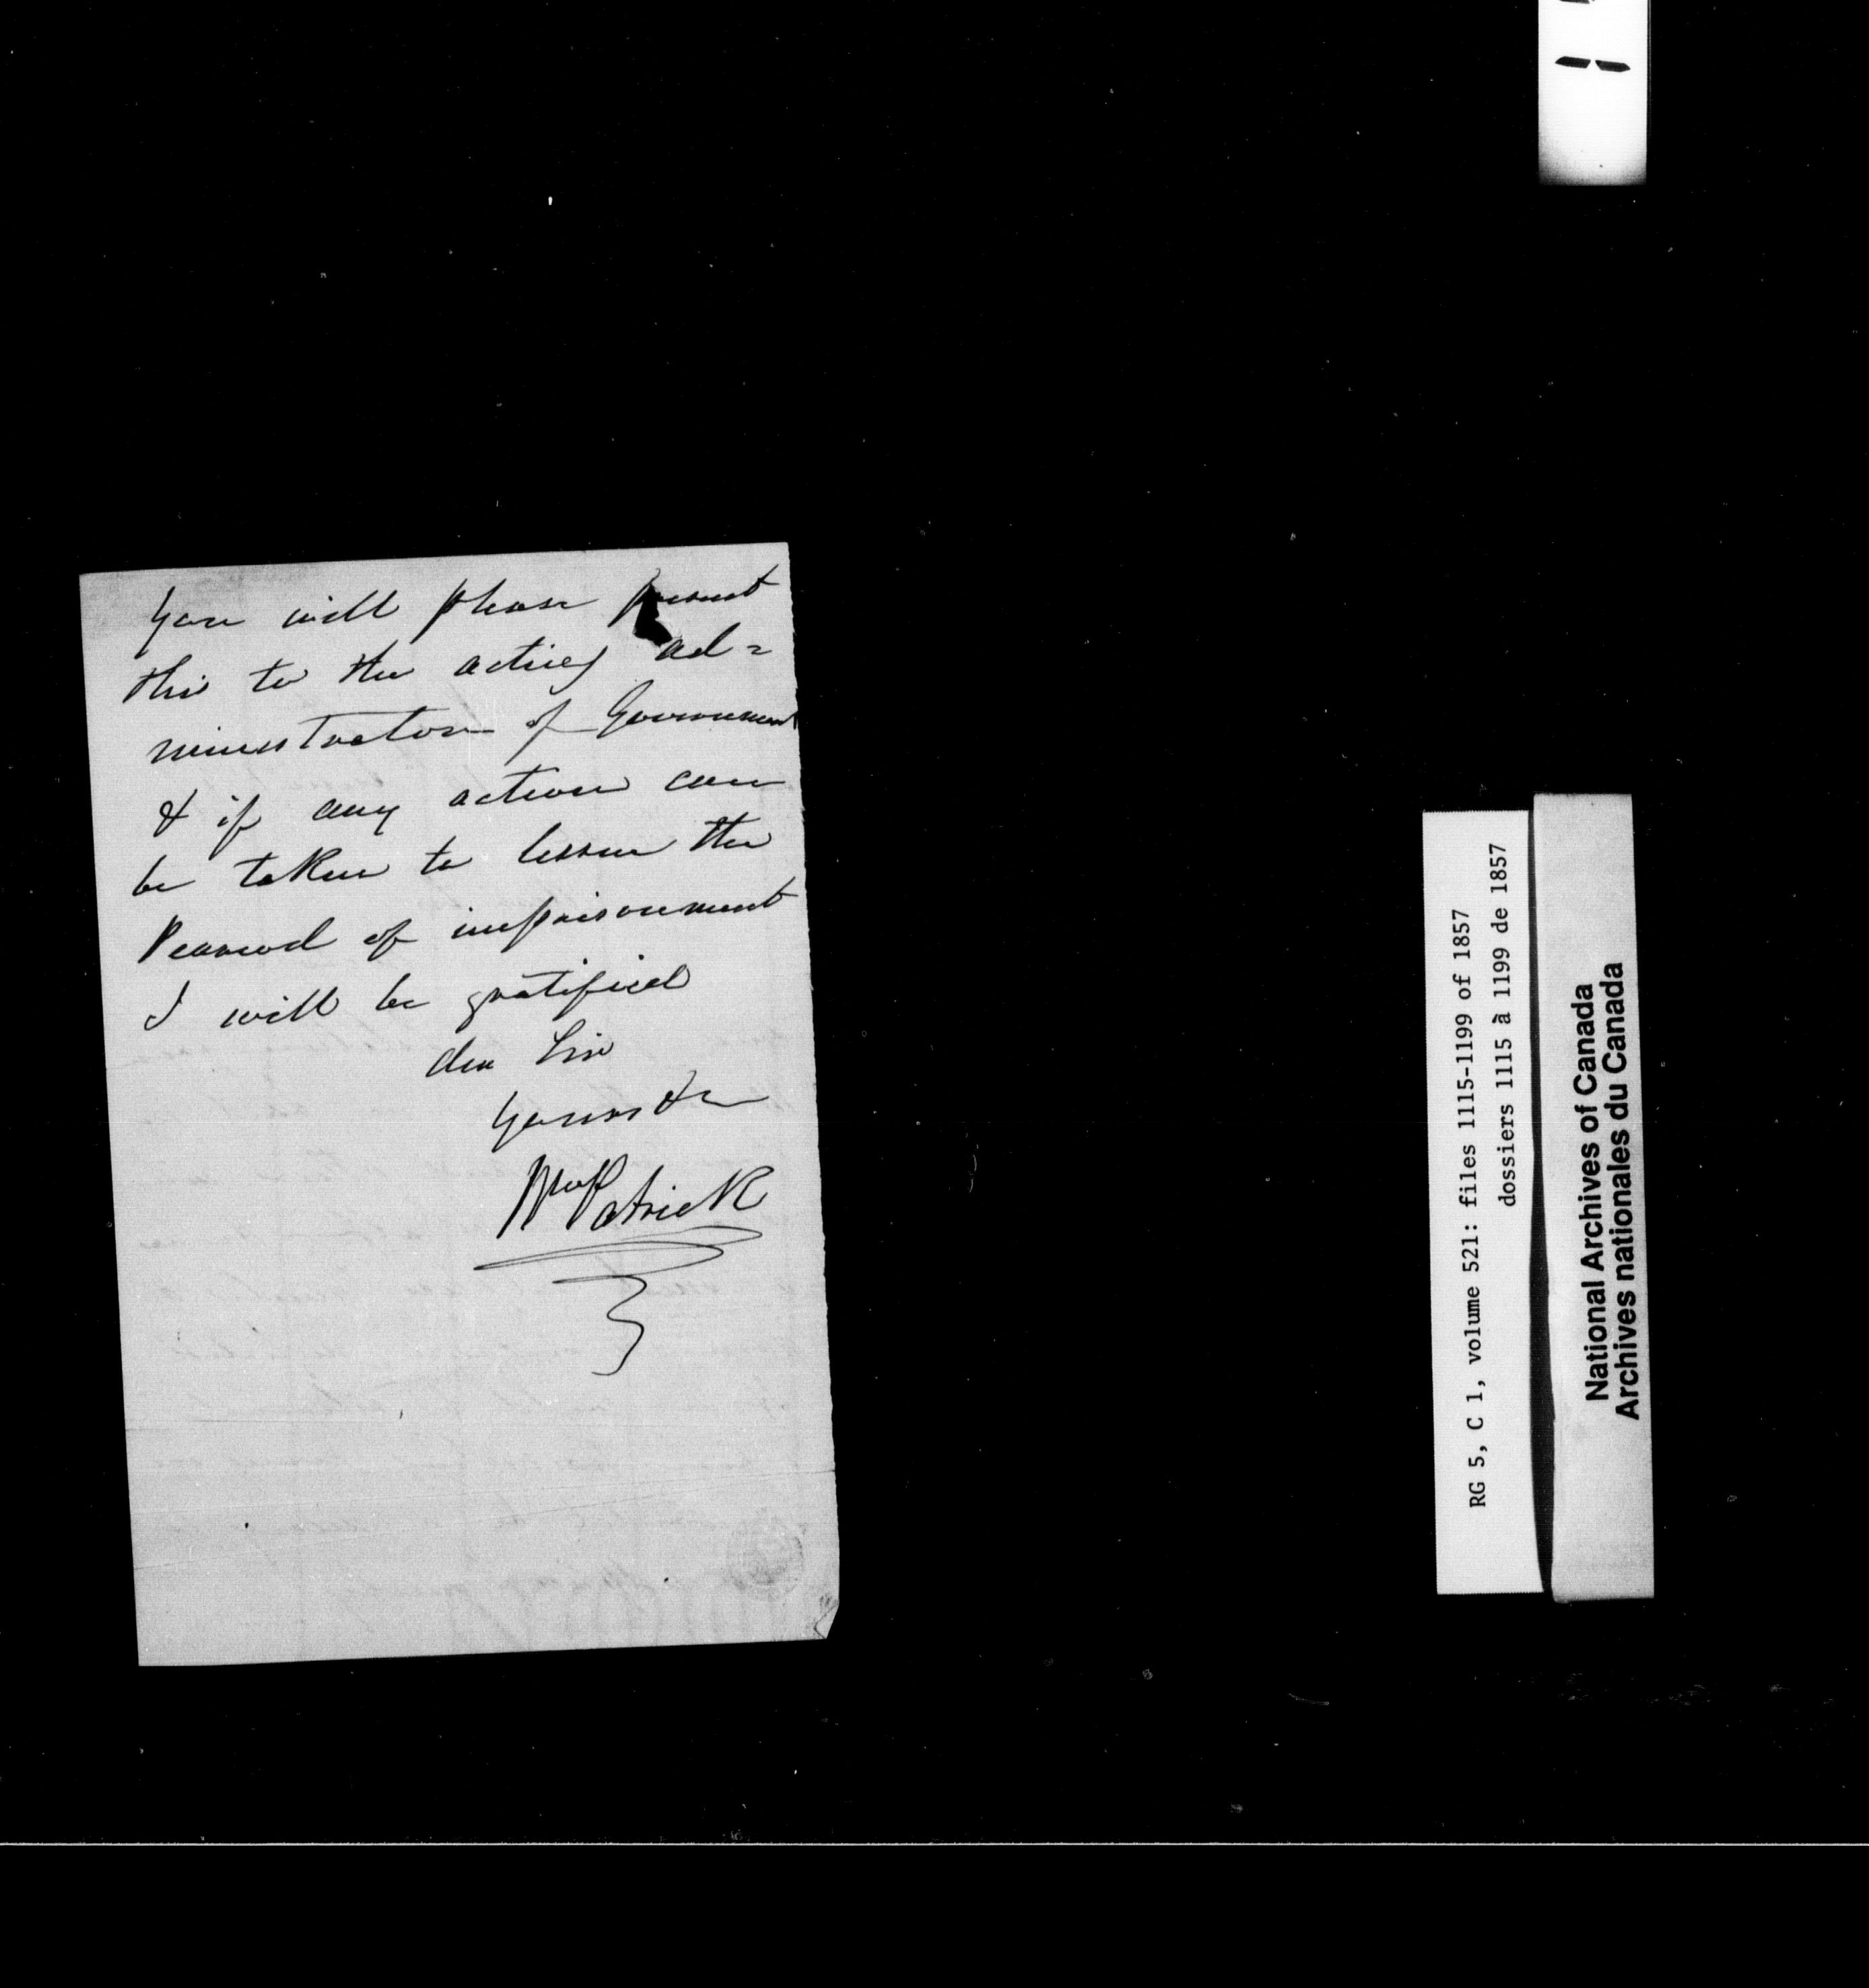 You will please present
this to the acting ad=
ministrator of Government
& if any action can
be taken to lessen the
Pearwod of imprisonment
I will be gratified
dear Sir
Yours &c
Wm Patrick
RG 5, C 1, volume 521: files 1115-1199 of 1857
dossiers 1115 à 1199 de 1857
National Archives of Canada
Archives nationales du Canada